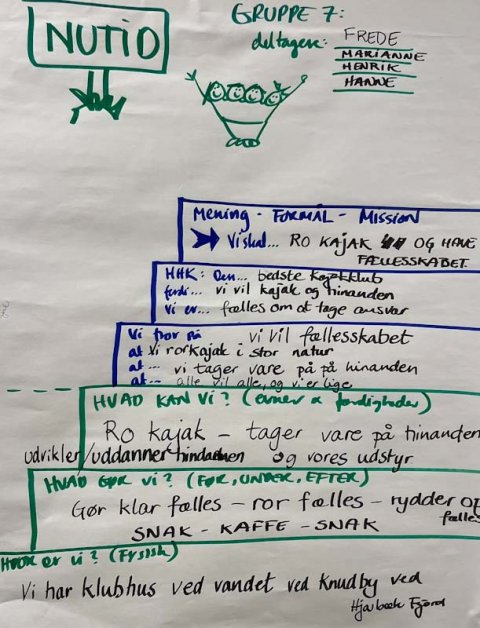 NUTID
GRUPPE 7:
deltagere: FREDE
MARIANNE
HENRIK
HANNE
Mening - FORMÅL - MISSION
Vi skal... RO KAJAK OG HAVE
FÆLLESSKABET
HHK: Den... bedste kajakklub
fordi... vi vil kajak og hinanden
vi er... fælles om at tage ansvar
Vi tror på vi vil fællesskabet
at vi ror kajak i stor natur
at... vi tager vare på på hinanden
at... alle vil alle, og vi er lige
HVAD KAN VI? (evner & færdigheder)
Ro kajak - tager vare på hinanden
udvikler/uddanner hinanden og vores udstyr
HVAD GØR VI? (FØR, UNDER, EFTER)
Gør klar fælles - ror fælles - rydder op
fælles
SNAK - KAFFE - SNAK
HVOR er vi? (Fysisk)
Vi har klubhus ved vandet ved Knudby ved
Hjarbæk Fjord